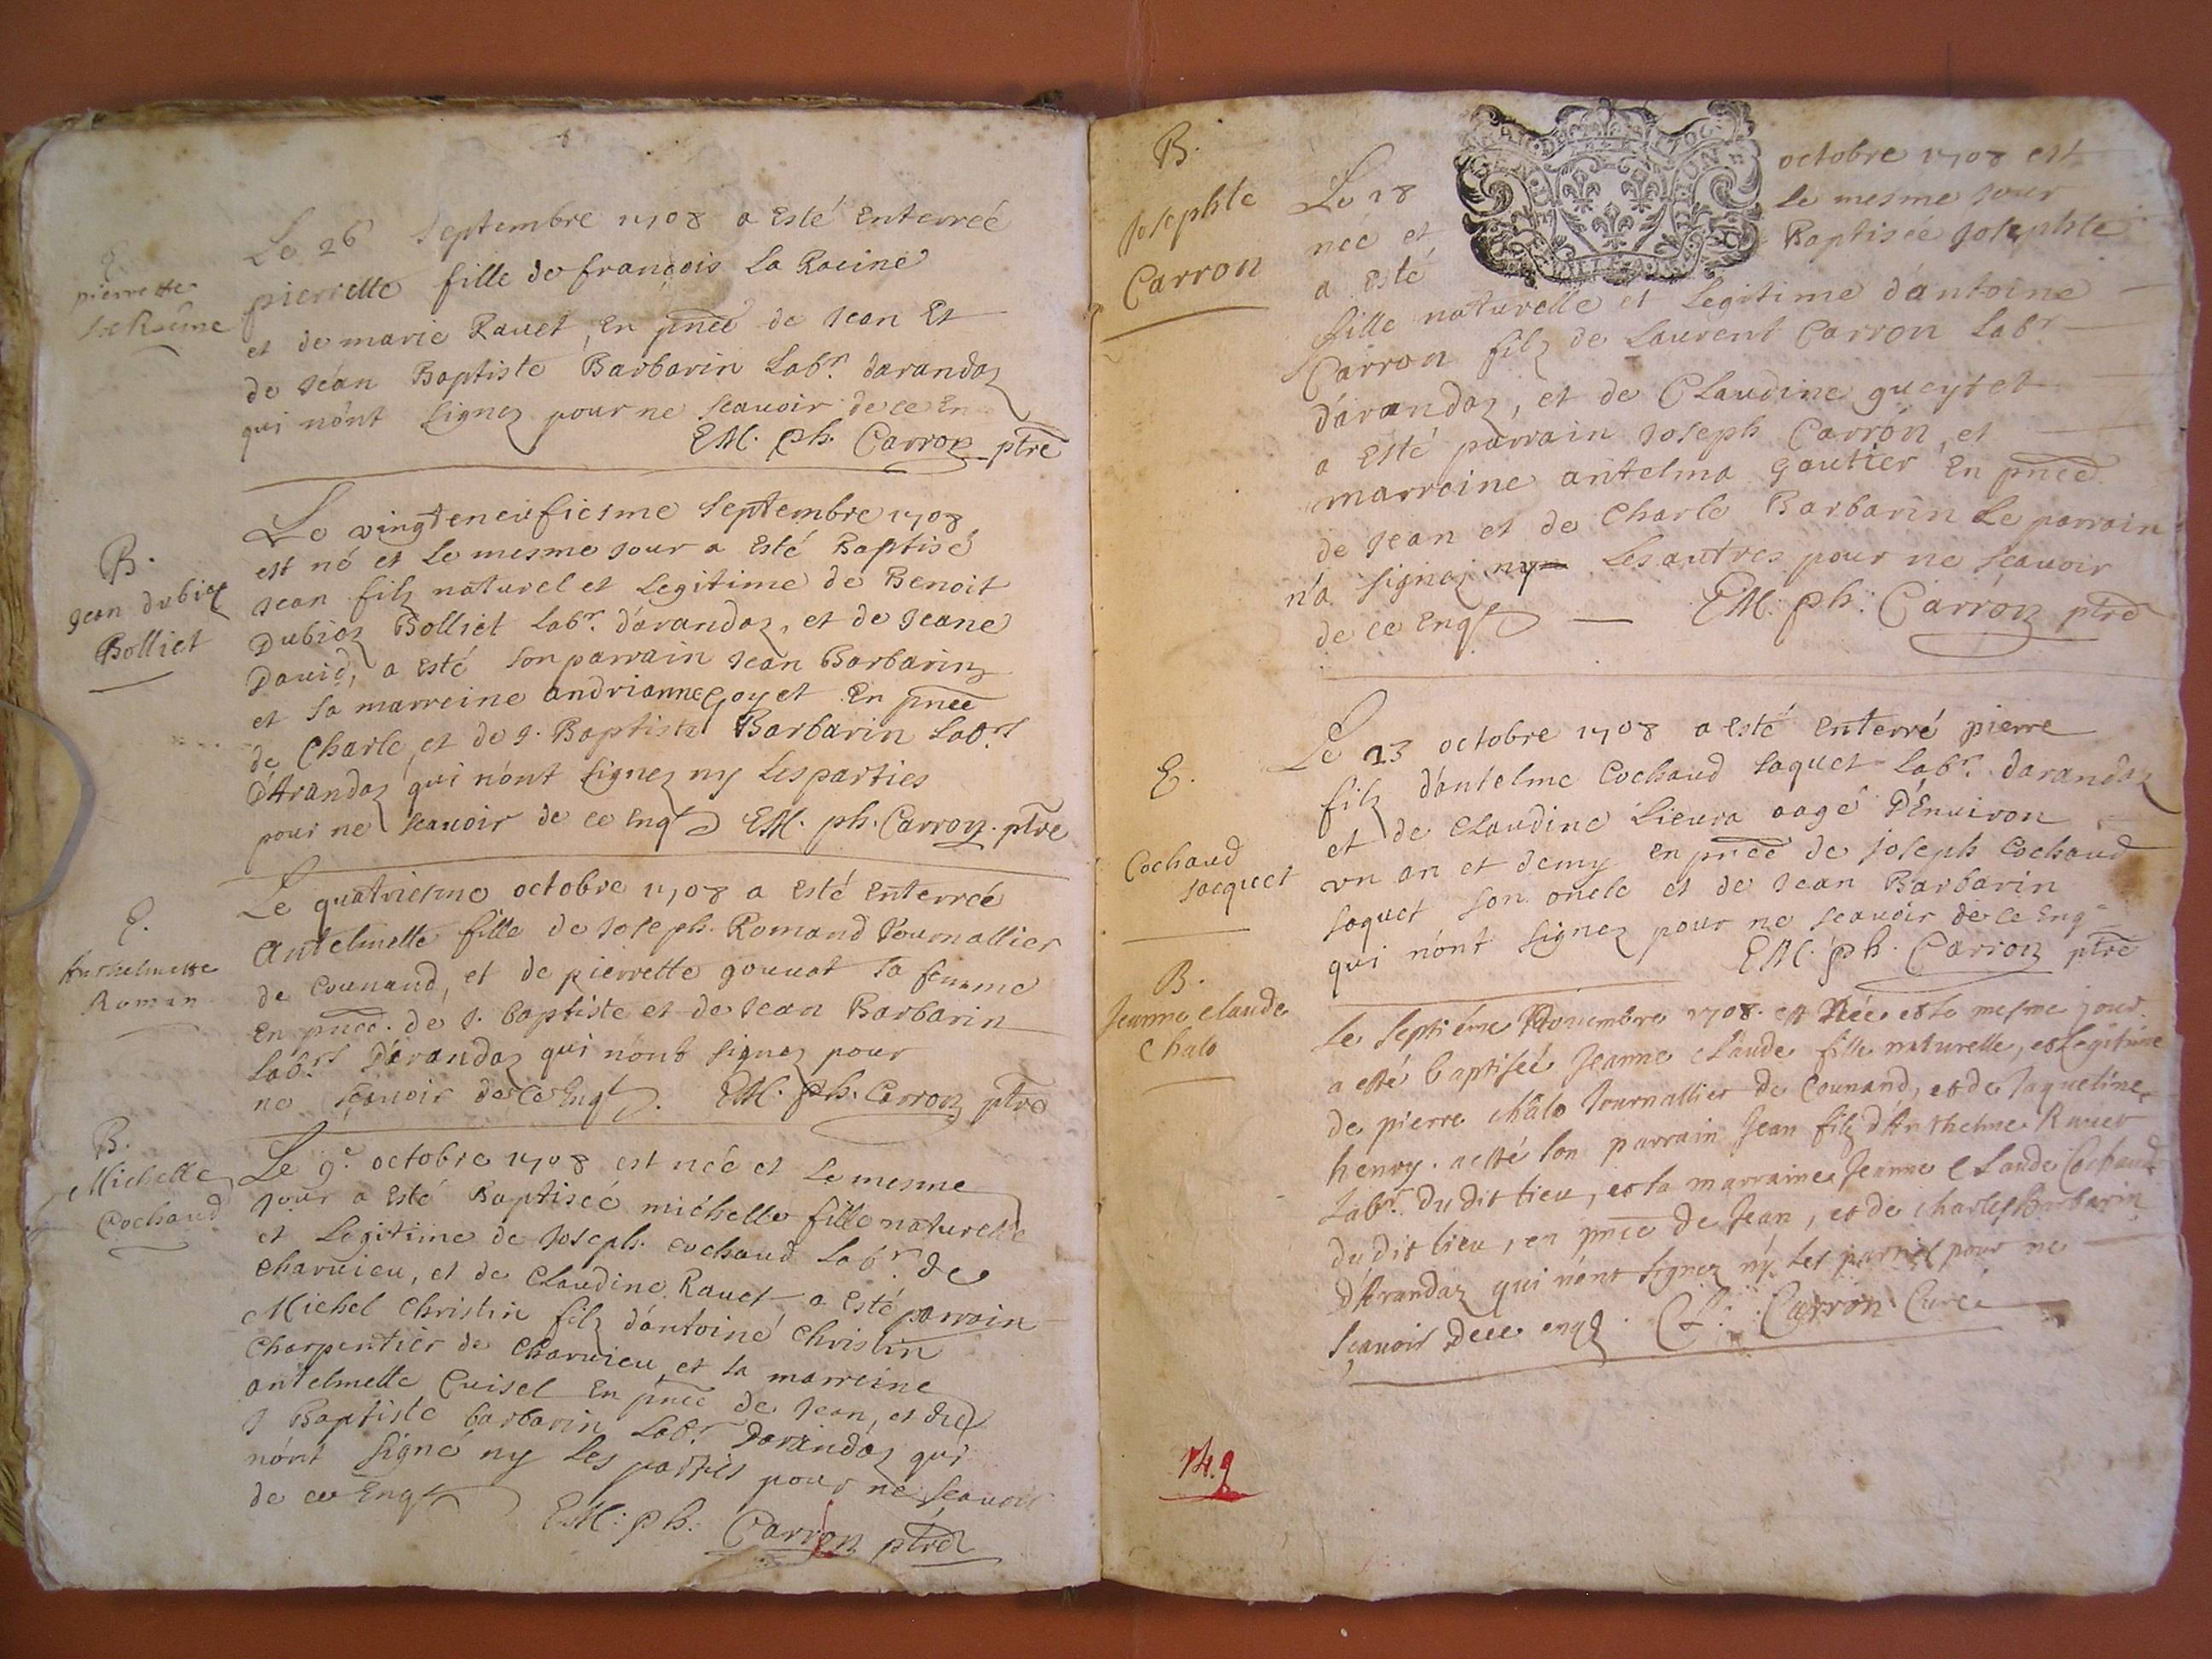 E.
pierrette
La Racine
Le 26 septembre 1708 a Esté Enterreé
pierrette fille de françois La Racine
et de marie Rauet, En pnce de Jean Et
de Jéan Baptiste Barbarin Labr. darandaz
qui nónt Signez pour ne Scauoir de ce En
EM. Ph. Carron ptre
B.
Jean dubiez
Bolliet
Le vingteneufiesme Septembre 1708
est né et Le mesme Jour a Esté Baptisé
Jean filz naturel et Legitime de Benoit
Dubiez Bolliet Labr. dárandaz, et de Jeane
Dauid, a esté Son parrain Jean Barbarin
et Sa marreine andrianne Goyet En pnce
de Charle, et de J. Baptiste Barbarin Labrs
D'Arandaz qui nónt Signez ny Les parties
pour ne Scauoir de ce Enqs EM. ph. Carron. ptre
E.
Anthelmette
Roman
Le quatriesme octobre 1708 a Esté Enterreé
Antelmette fille de Joseph Romand Journallier
de Counand, et de pierrette gouuat Sa femme
En pnce. de J. baptiste et de Jean Barbarin
Labrs D'arandaz qui nónt Signez pour
ne Scauoir de ce Enqs. EM. Ph. Carron ptre
B.
Michelle
Cochaud
Le 9e octobre 1708 est neé et Le mesme
Jour a Esté Baptiseé michelle fille naturelle
et Legitime de Joseph Cochaud Labr de
charuieu, et de Claudine Rauet a Esté parrain
Michel Christin filz dántoine Christin
Charpentier de Charuieu et Sa marreine
antelmette Cuisel En pnce de Jean, et de
J Baptiste barbarin Labr. Darandaz qui
nónt Signé ny Les parties pour ne Scauoir
de ce Enqs EM: Ph: Carron ptre
B.
Josephte
Carron
Le 18 octobre 1708 est
neé et Le mesme Jour
a esté Baptisée Josephte
fille naturelle et Legitime dántoine
Carron filz de Laurent Carron Labr
dárandaz, et de Claudine gueytet
a Esté parrain Joseph Carron, et
marreine antelma Gautier En pnce
de Jean et de Charle Barbarin Le parrain
n'a Signez ny Les autres pour ne Scauoir
de ce Enqs EM: Ph: Carron ptre
E.
Cochaud
Jacquet
Le 23 octobre 1708 a esté Enterré pierre
filz dántelme Cochaud Jaquet Labr. darandaz
et de Claudine Lieura aagé D'Enuiron
vn an et demy en pnce de Joseph Cochaud
Jaquet Son oncle et de Jean Barbarin
qui nónt Signez pour ne Scauoir de ce Enqs
EM. Ph. Carron ptre
B.
Jeanne claude
Chalo
Le Septième Nouembre 1708. est Née et le mesme jour
a esté baptiseé Jeanne Claude fille naturelle, et Légitime
de pierre chalo Journallier de Counand, et de Jaqueline
henry. a esté Son parrain Jean filz d'Anthelme Rauet
Labr. Dudit lieu, et Sa marraine Jeanne Claude Cochaud
dudit lieu, en pnce de Jean, et de charles Barbarin
D'Arandaz qui n'ont Signez ny les parties pour ne
Sçauoir dece enqs. Carron Curé
149